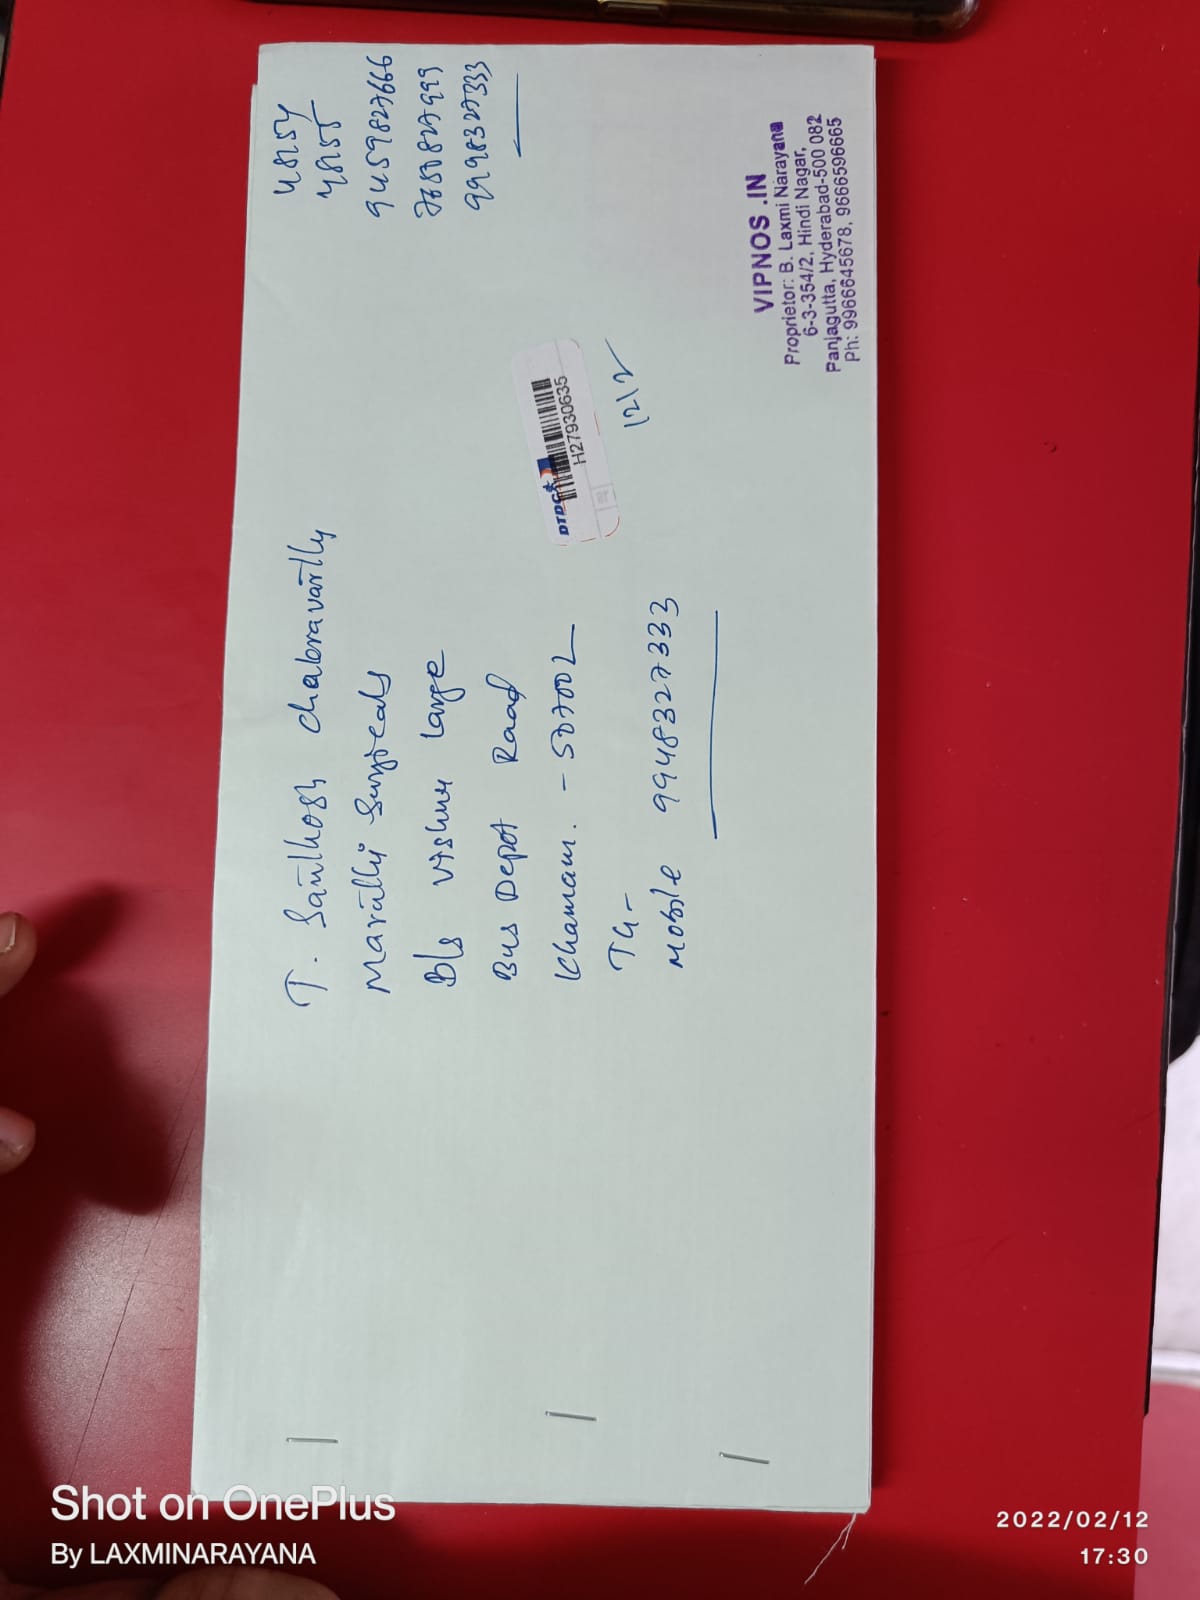 T. Santhosh Chakravarthy
Maruthi Surgicals
B/s Vishnu Large
Bus Depot Road
Khamam. - 507002
TG-
Mobile 9948327333
9459827666
7680827999
9998327333
DTDC
H27930635
12/2
VIPNOS .IN
Proprietor: B. Laxmi Narayana
6-3-354/2, Hindi Nagar,
Panjagutta, Hyderabad-500 082
Ph: 9966645678, 9666596665
Shot on OnePlus
By LAXMINARAYANA
2022/02/12
17:30